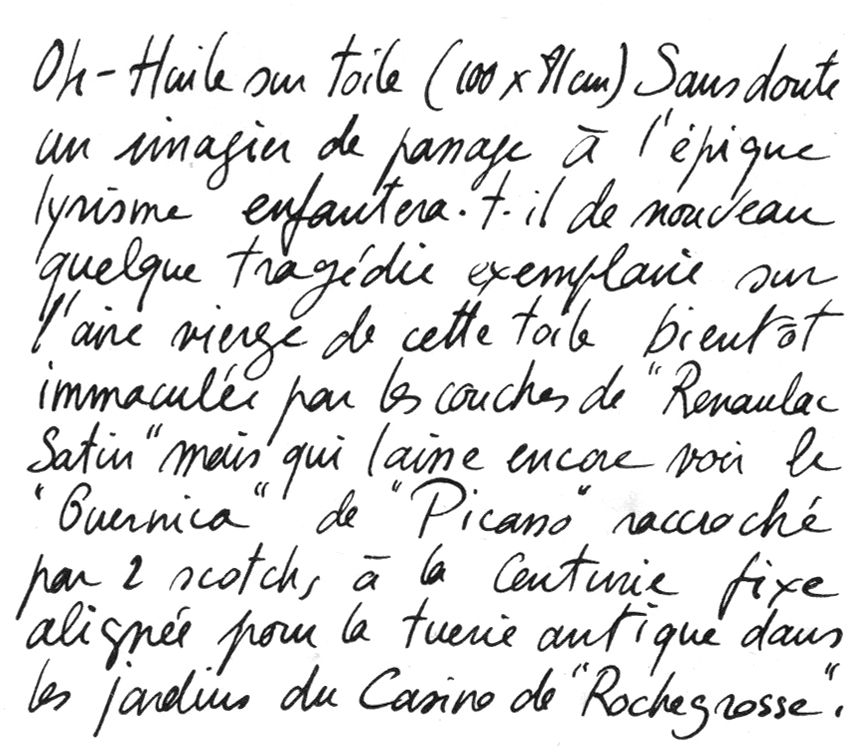 Oh - Huile sur toile (100 x 81 cm) Sans doute
un imagier de passage à l'épique
lyrisme enfantera-t-il de nouveau
quelque tragédie exemplaire sur
l'aire vierge de cette toile bientôt
immaculée par les couches de "Renaulac
Satin" mais qui laisse encore voir le
"Guernica" de "Picasso" raccroché
par 2 scotchs à la Centurie fixe
alignée pour la tuerie antique dans
les jardins du Casino de "Rochegrosse".